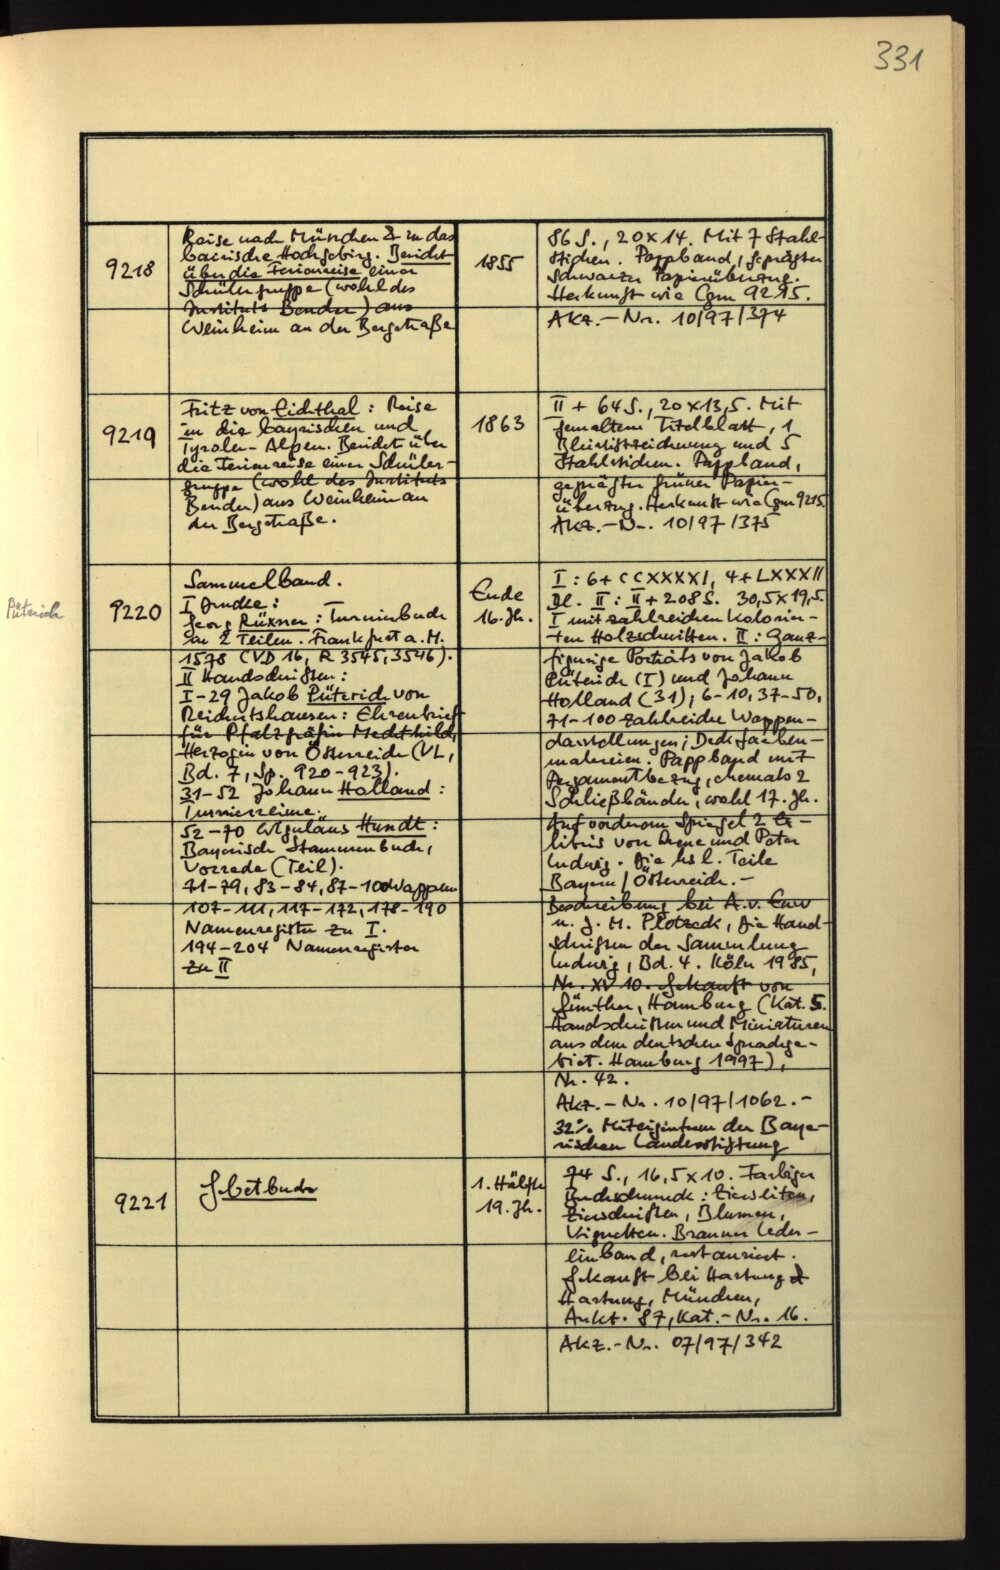 331
9218
Reise nach München & in das
bairische Hochgebirg. Bericht
über die Ferienreise einer
Schülergruppe (wohl des
Instituts Bender) aus
Weinheim an der Bergstraße
1855
86 S., 20 x 14. Mit 7 Stahl-
stichen. Pappband, geprägter
schwarzer Papierüberzug.
Herkunft wie Cgm 9215.
Akz.-Nr. 10/97/374
9219
Fritz von Eichthal: Reise
in die bayrischen und
Tyroler-Alpen. Bericht über
die Ferienreise einer Schüler-
gruppe (wohl des Instituts
Bender) aus Weinheim an
der Bergstraße.
1863
II + 64 S., 20 x 13,5. Mit
gemaltem Titelblatt, 1
Bleistiftzeichnung und 5
Stahlstichen. Pappband,
geprägter grüner Papier-
überzug. Herkunft wie Cgm 9215
Akz.-Nr. 10/97/375
Püterich
9220
Sammelband.
I Drucke:
Georg Rüxner: Turnierbuch
in 2 Teilen. Frankfurt a. M.
1578 (VD 16, R 3545, 3546).
II Handschriften:
1-29 Jakob Püterich von
Reichertshausen: Ehrenbrief
für Pfalzgräfin Mechthild,
Herzogin von Österreich (VL,
Bd. 7, Sp. 920-923).
31-52 Johann Holland:
Turnierreime.
52-70 Wiguläus Hundt:
Bayerisch Stammenbuch,
Vorrede (Teil).
71-79, 83-84, 87-100 Wappen
107-111, 117-172, 178-190
Namenregister zu I.
194-204 Namenregister
zu II
Ende
16. Jh.
I: 6 + CCXXXXI, 4 + LXXXII
Bl. II: II + 208 S. 30,5 x 19,5.
I mit zahlreichen kolorier-
ten Holzschnitten. II: Ganz-
figurige Porträts von Jakob
Püterich (I) und Johann
Holland (31); 6-10, 37-50,
71-100 zahlreiche Wappen-
darstellungen; Deckfarben-
malereien. Pappband mit
Pergamentbezug, ehemals 2
Schließbänder, wohl 17. Jh.
Auf vorderem Spiegel 2 Ex-
libris von Irene und Peter
Ludwig. Die hsl. Teile
Bayern/Österreich.-
Beschreibung bei A. v. Euw
u. J. M. Plotzek, Die Hand-
schriften der Sammlung
Ludwig, Bd. 4. Köln 1985,
Nr. XV 10. Gekauft von
Günther, Hamburg (Kat. 5.
Handschriften und Miniaturen
aus dem deutschen Sprachge-
biet. Hamburg 1997),
Nr. 42.
Akz.-Nr. 10/97/1062.-
32% Miteigentum der Baye-
rischen Landesstiftung
9221
Gebetbuch
1. Hälfte
19. Jh.
74 S., 16,5 x 10. Farbiger
Buchschmuck: Zierseiten,
Zierschriften, Blumen,
Vignetten. Brauner Leder-
einband, restauriert.
Gekauft bei Hartung &
Hartung, München,
Aukt. 87, Kat.-Nr. 16.
Akz.-Nr. 07/97/342